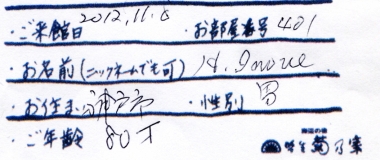 ・ご来館日 2012.11.6 ・お部屋番号 401
・お名前(ニックネームでも可) H. Inoue
・お住まい 神戸市 ・性別 男
・ご年齢 80才